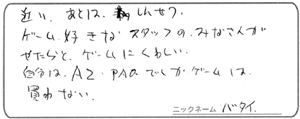 近い、あとは、しんせつ。
ゲーム好きなスタッフの、みなさんが
やたらと、ゲームにくわしい。
自分は、A2-PAOでしかゲームは、
買わない。
ニックネーム バタイ